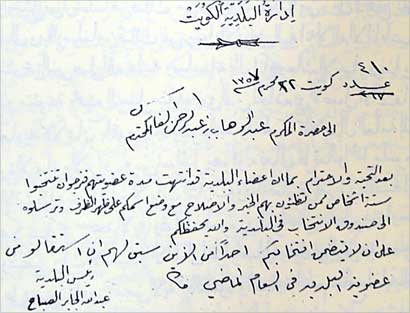 إدارة البلدية الكويت
٤١٠
عدد كويت ٢٢ محرم ١٣٥٧
الى حضرة المكرم عبدالوهاب بن عبدالرحمن الفارس المحترم
بعد التحية والاحترام بما ان اعضاء البلدية قد انتهت مدة عضويتهم فنرجو ان تنتخبوا
ستة اشخاص ممن تظنون بهم الخير والاصلاح مع وضع اسمكم على ظهر الظرف وترسلوه
الى صندوق الانتخاب في البلدية والله يحفظكم
على ان لا يتضمن انتخابكم احداً من الذين سبق لهم ان استقالو من
عضوية البلدية في العام الماضي
رئيس البلدية
عبدالله الجابر الصباح